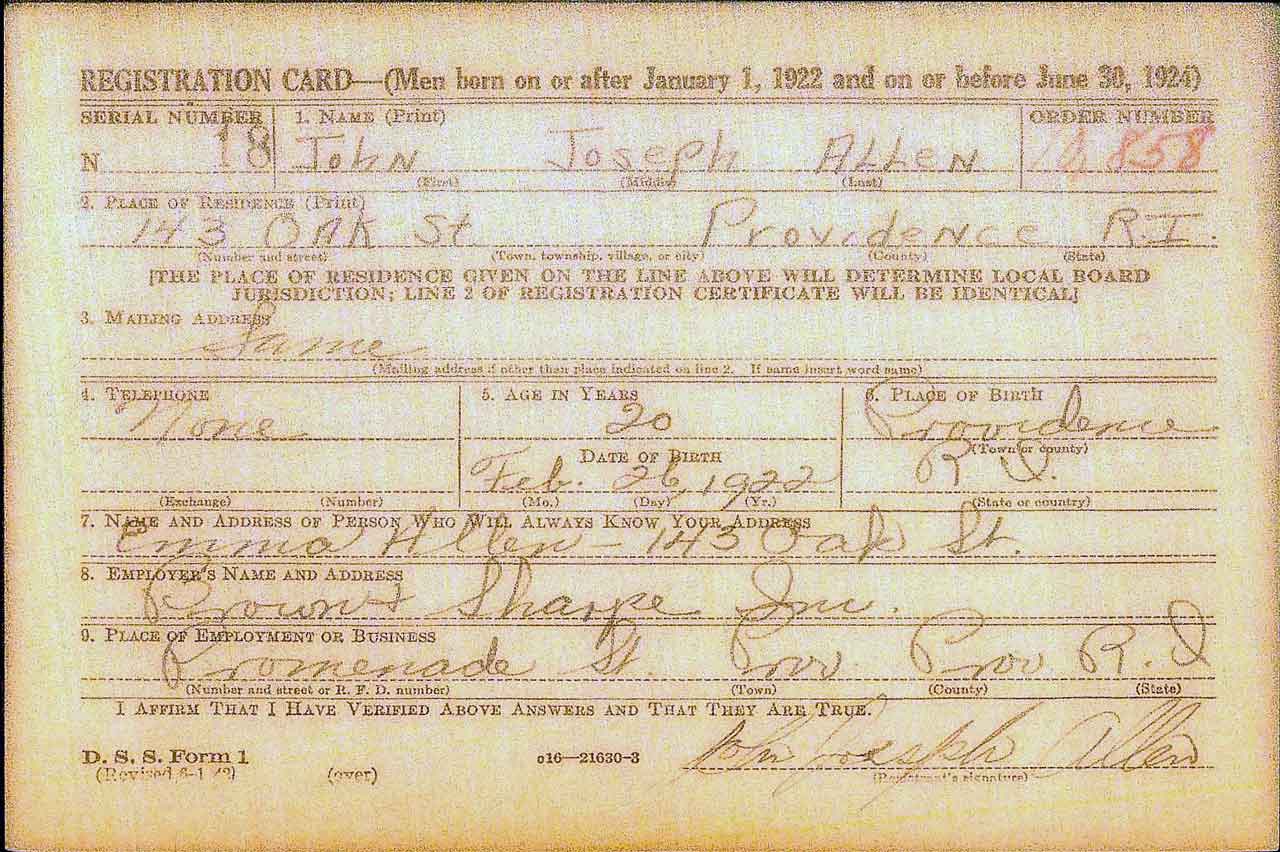 REGISTRATION CARD—(Men born on or after January 1, 1922 and on or before June 30, 1924)
SERIAL NUMBER 1. NAME (Print) ORDER NUMBER
N 18 John Joseph Allen 858
(First) (Middle) (Last)
2. PLACE OF RESIDENCE (Print)
143 OAK St. Providence R.I.
(Number and street) (Town, township, village, or city) (County) (State)
[THE PLACE OF RESIDENCE GIVEN ON THE LINE ABOVE WILL DETERMINE LOCAL BOARD
JURISDICTION; LINE 2 OF REGISTRATION CERTIFICATE WILL BE IDENTICAL]
3. MAILING ADDRESS
Same
(Mailing address if other than place indicated on line 2. If same insert word same)
4. TELEPHONE 5. AGE IN YEARS 6. PLACE OF BIRTH
None 20 Providence
DATE OF BIRTH (Town or county)
Feb. 26, 1922 R.I.
(Exchange) (Number) (Mo.) (Day) (Yr.) (State or country)
7. NAME AND ADDRESS OF PERSON WHO WILL ALWAYS KNOW YOUR ADDRESS
Emma Allen - 143 Oak St.
8. EMPLOYER'S NAME AND ADDRESS
Brown & Sharpe Inc.
9. PLACE OF EMPLOYMENT OR BUSINESS
Promenade St. Prov Prov R.I
(Number and street or R. F. D. number) (Town) (County) (State)
I AFFIRM THAT I HAVE VERIFIED ABOVE ANSWERS AND THAT THEY ARE TRUE.
D. S. S. Form 1 o16—21630-3 John Joseph Allen
(Revised 6-1-42) (over) (Registrant's signature)